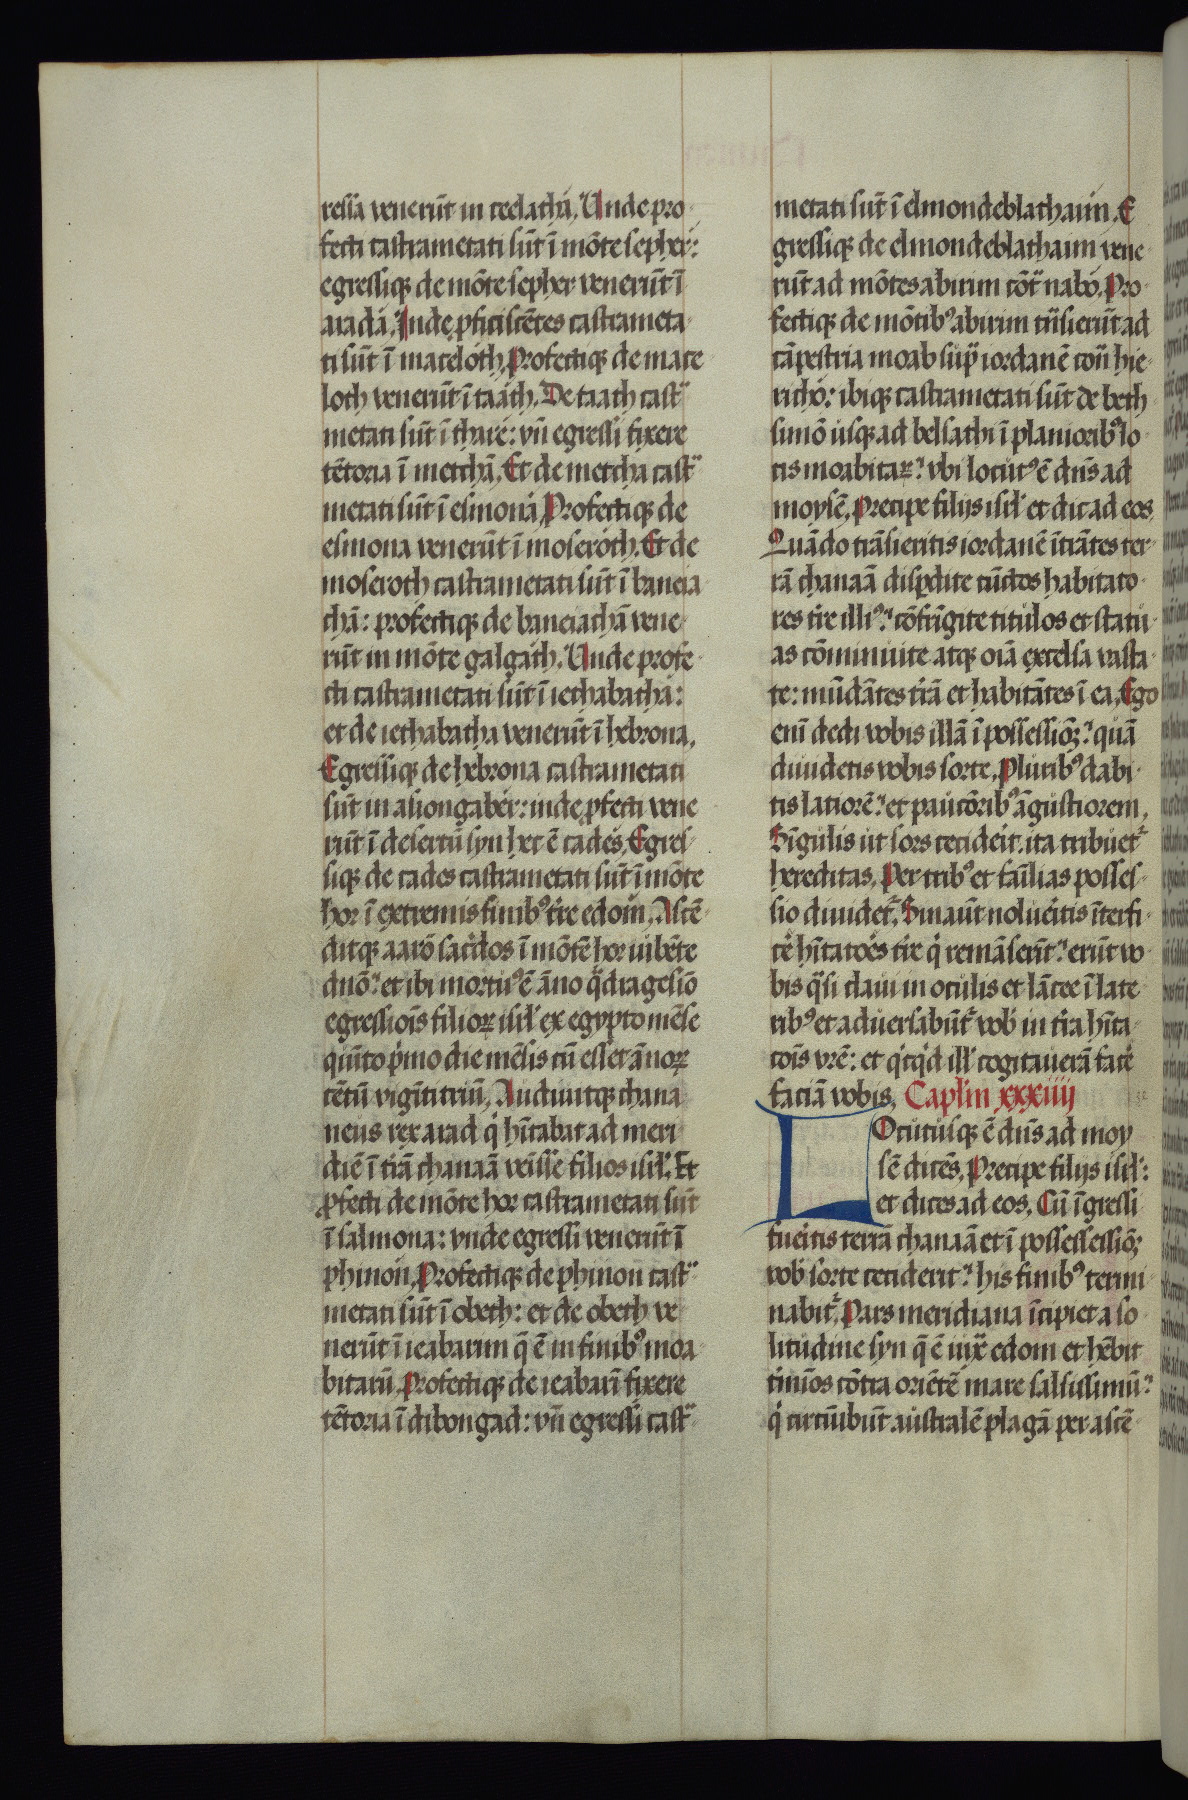 ressa venerūt in ceelathā. Unde pro
fecti castrametati sūt ī mōte sepher:
egressiqꝫ de mōte sepher venerūt ī
aradā. Inde ꝓficiscētes castrameta
ti sūt ī maceloth. Profectiqꝫ de mace
loth venerūt ī taath. De taath cast̃
metati sūt ī thare: vñ egressi fixere
tētoria ī metchā. Et de metcha cast̃
metati sūt ī esmona. Profectiqꝫ de
esmona venerūt ī moseroth. Et de
moseroth castrametati sūt ī baneia
chā: profectiqꝫ de baneiachā vene
rūt in mōte galgath. Unde profe
cti castrametati sūt ī iethabatha:
et de iethabatha venerūt ī hebrona.
Egressiqꝫ de hebrona castrametati
sūt in asiongaber: inde ꝓfecti vene
rūt ī desertū syn hec ē cades. Egres
siqꝫ de cades castrametati sūt ī mōte
hor ī extremis finibꝰ t̃re edom. Ascē
ditqꝫ aarō sac̃dos ī mōtē hor iubēte
dn̄o: et ibi mortuꝰ ē āno q̈dragesīo
egressiōis filioꝝ isrl̕ ex egypto mēse
quīto p̕mo die mēsis cū esset ānoꝝ
cētū vigīti triū. Audiuitqꝫ chana
neus rex arad q̕ hītabat ad meri
diē ī t̃rā chanaā veīsse filios isrl̕. Et
ꝓfecti de mōte hor castrametati sūt
ī salmona: vnde egressi venerūt ī
phinon. Profectiqꝫ de phinon cast̃
metati sūt ī oboth: et de oboth ve
nerūt ī ieabarim q̄ ē in finibꝰ moa
bitarū. Profectiqꝫ de ieabarī fixere
tētoria ī dibongad: vñ egressi cast̃
metati sūt ī elmondeblathaim. E
gressiqꝫ de elmondeblathaim vene
rūt ad mōtes abirim cōt̃ nabo. Pro
fectiqꝫ de mōtibꝰ abirim trāsierūt ad
cāpestria moab sup̃ iordanē cont̃ hie
richo: ibiqꝫ castrametati sūt de beth
simō usqꝫ ad belsathi ī planioribꝰ lo
cis moabitaꝝ: vbi locutꝰ ē dn̄s ad
moysē. Precipe filijs isrl̕ et dic ad eos
Quādo trāsieritis iordanē ītrātes ter
rā chanaā disꝑdite cūctos habitato
res t̃re illiꝰ: cōfrīgite titulos et statu
as cōminuite atqꝫ oīa excelsa vasta
te: mūdātes t̃rā et habitātes ī ea. Ego
enī dedi vobis illā ī possessiōꝫ: quā
diuidetis vobis sorte. Pluribꝰ dabi
tis latiorē: et paucōribꝰ āgustiorem.
Sīgulis ut sors cecideīt. ita tribuet᷑
hereditas. Per tribꝰ et faīlias posses
sio diuidet᷑. Sin aūt noluēitis īterfi
cē hītatoēs t̃re q̕ remāserūt: erūt vo
bis q̈si claui in oculis et lācee ī late
ribꝰ et aduersabūt᷑ vob̕ in t̃ra hīta
cōis vrē: et q̕cq̕d ill̕ cogitauerā facē
faciā vobis. Caplm̄ xxxiiij
LOcutusqꝫ ē dn̄s ad moy
sē dicēs. Precipe filijs isrl̕:
et dices ad eos. Cū īgressi
fueītis terrā chanaā et ī possessessiōꝫ
vob̕ sorte ceciderit: his finibꝰ termi
nabit᷑. Pars meridiana īcipiet a so
litudine syn q̄ ē iux̄ edom et hēbit
tmīos cōtra oriētē mare salsissimū:
q̕ circūibūt australē plagā per ascē